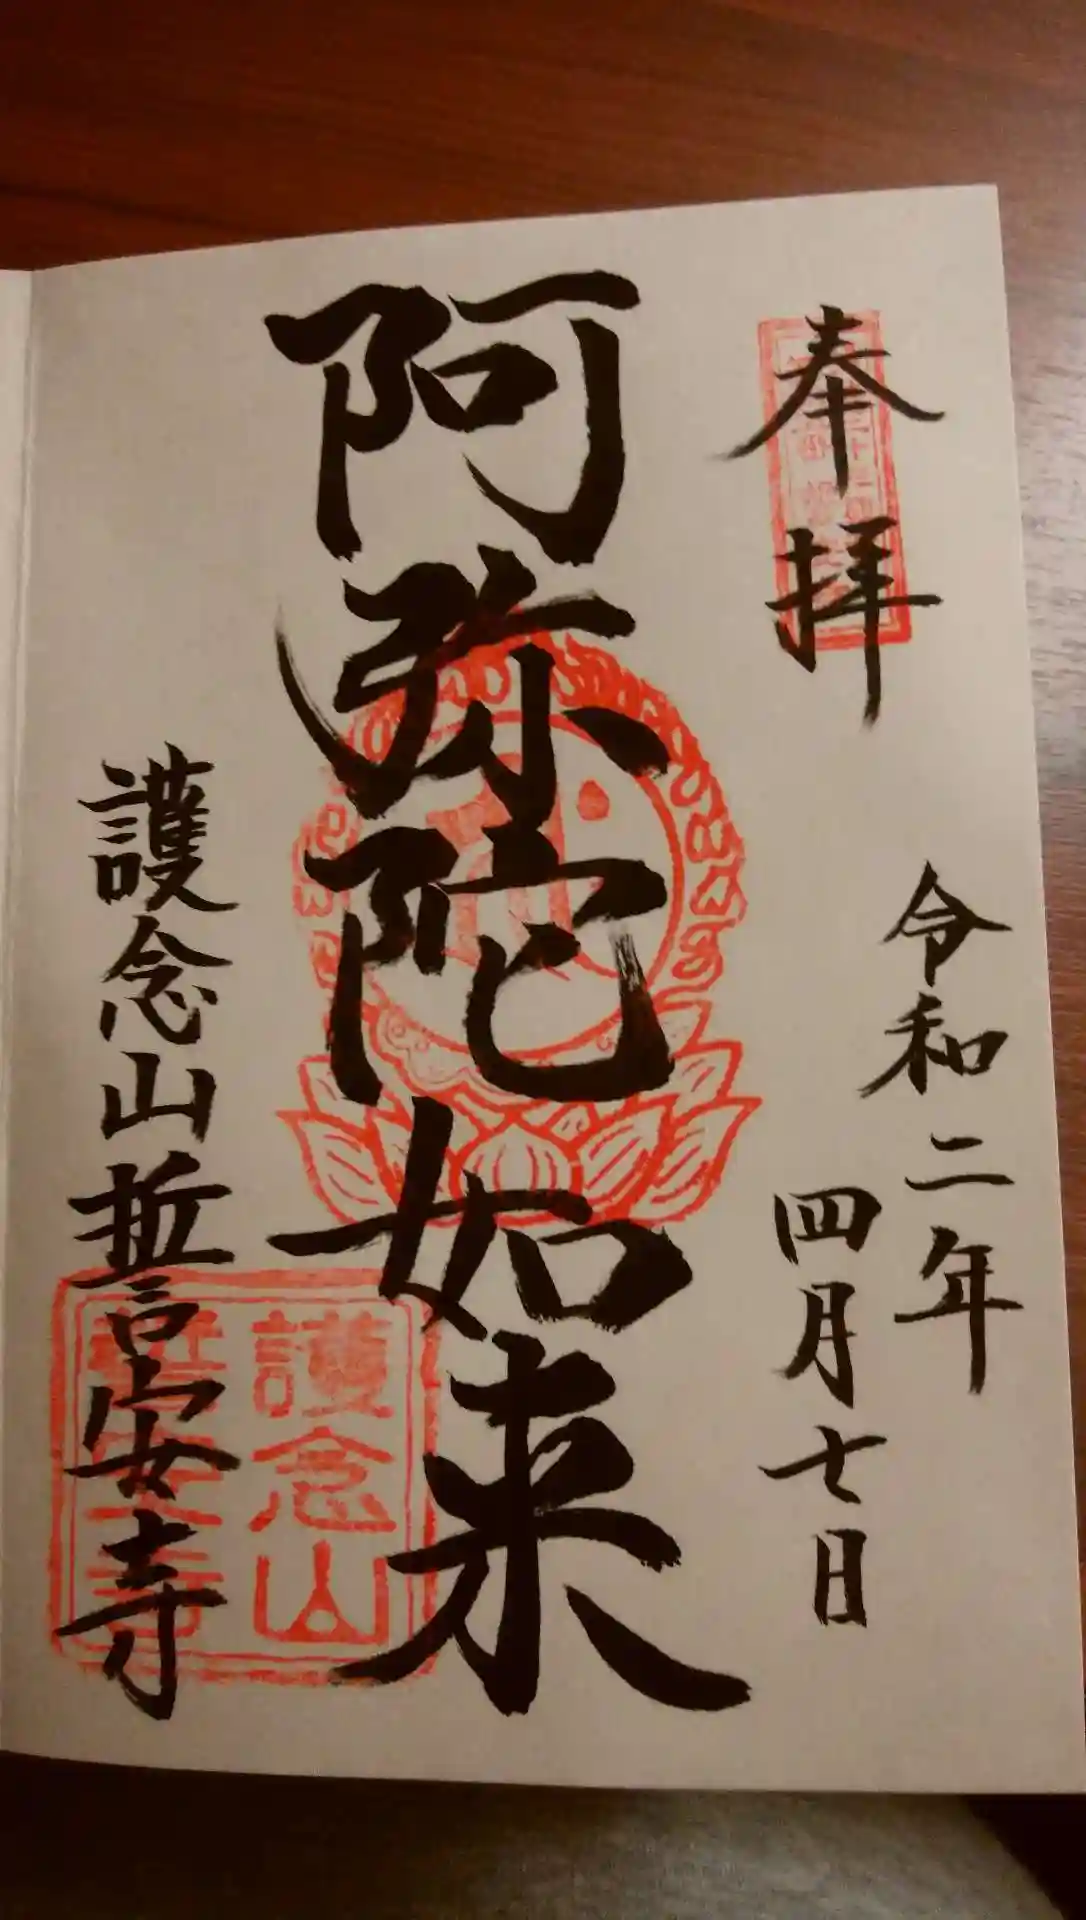 奉拝
令和二年
四月七日
阿弥陀如来
護念山誓安寺
護念山
誓安寺